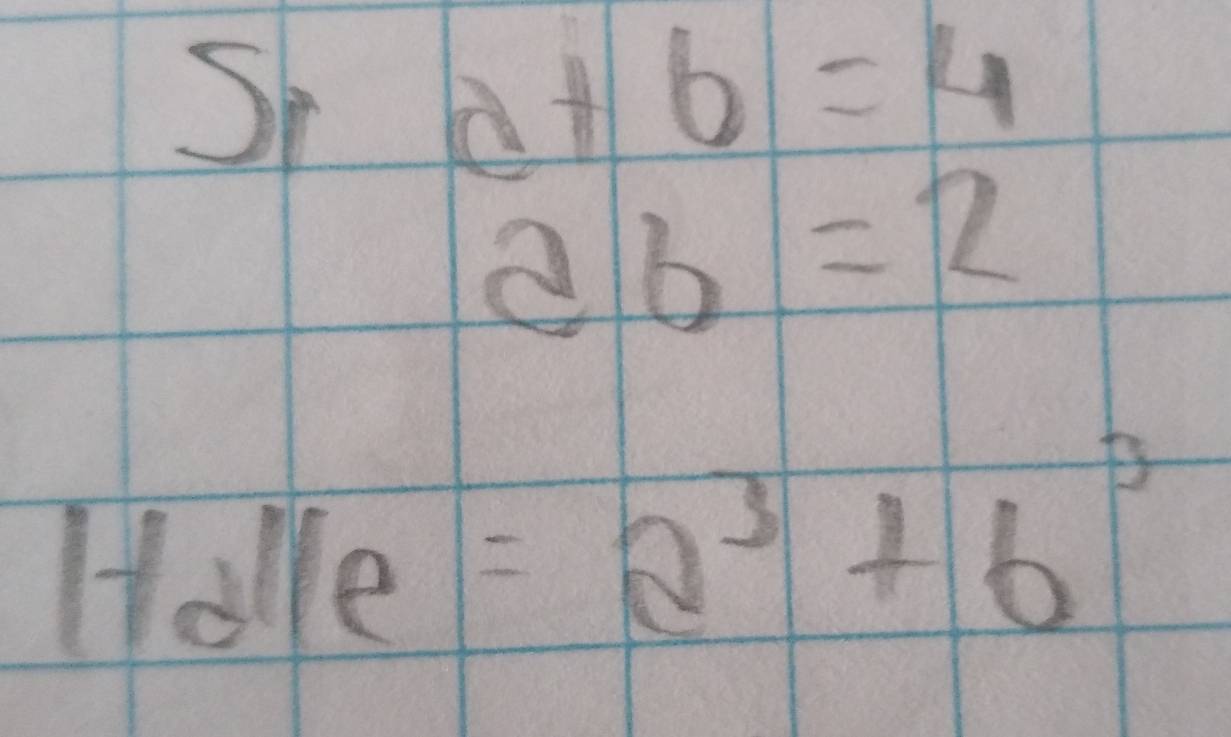 Si a+b = 4
ab = 2
Halle = a³ + b³